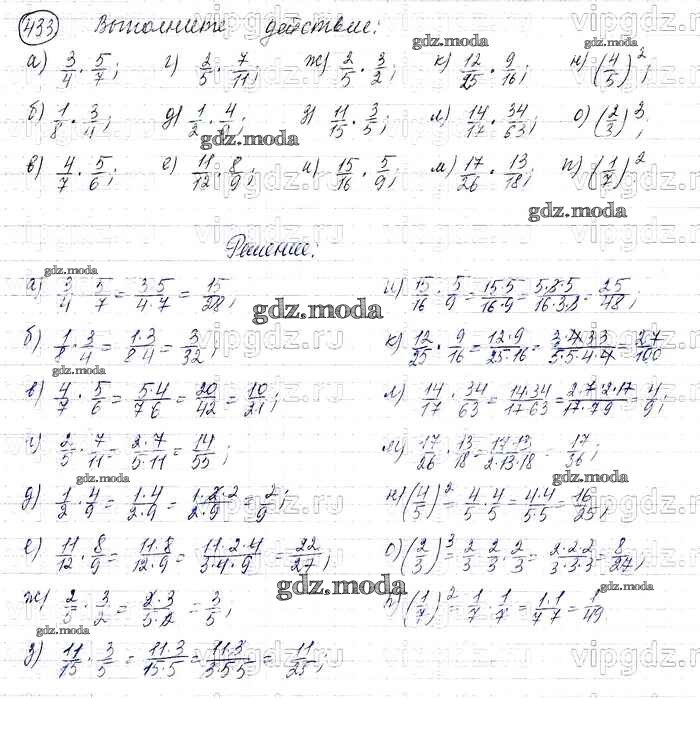 433 Выполните действие:
а) 3/4 · 5/7; г) 2/5 · 7/11; ж) 2/5 · 3/2; к) 12/25 · 9/16; н) (4/5)²;
б) 1/8 · 3/4; д) 1/2 · 4/9; з) 11/15 · 3/5; л) 14/17 · 34/63; о) (2/3)³;
в) 4/7 · 5/6; е) 11/12 · 8/9; и) 15/16 · 5/9; м) 17/26 · 13/18; п) (1/7)²
Решение:
а) 3/4 · 5/7 = 3·5/4·7 = 15/28;
б) 1/8 · 3/4 = 1·3/8·4 = 3/32;
в) 4/7 · 5/6 = 5·4/7·6 = 20/42 = 10/21;
г) 2/5 · 7/11 = 2·7/5·11 = 14/55;
д) 1/2 · 4/9 = 1·4/2·9 = 1·2·2/2·9 = 2/9;
е) 11/12 · 8/9 = 11·8/12·9 = 11·2·4/3·4·9 = 22/27;
ж) 2/5 · 3/2 = 2·3/5·2 = 3/5;
з) 11/15 · 3/5 = 11·3/15·5 = 11·3/3·5·5 = 11/25;
и) 15/16 · 5/9 = 15·5/16·9 = 5·3·5/16·3·3 = 25/48;
к) 12/25 · 9/16 = 12·9/25·16 = 3·4·3·3/5·5·4·4 = 27/100
л) 14/17 · 34/63 = 14·34/17·63 = 2·7·2·17/17·7·9 = 4/9;
м) 17/26 · 13/18 = 17·13/2·13·18 = 17/36;
н) (4/5)² = 4/5 · 4/5 = 4·4/5·5 = 16/25;
о) (2/3)³ = 2/3 · 2/3 · 2/3 = 2·2·2/3·3·3 = 8/27;
п) (1/7)² = 1/7 · 1/7 = 1·1/7·7 = 1/49.
gdz.moda
vipgdz.ru